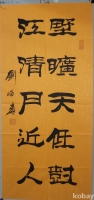 野曠天低樹
江清月近人
劉炳森
kobay